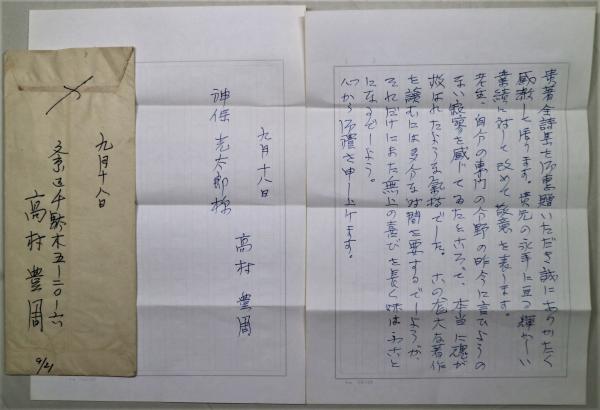 貴著全詩集を御恵贈いただき誠にありがたく
感謝して居ります。貴兄の永年に亘つ輝かしい
業績に対して改めて敬意を表します。
先年、自分の専門の分野の昨今に言ひようの
ない寂寥を感じてゐたところで、本当に魂が
救はれたような気持でした。この尨大な著作
を読むには多分な時間を要するでしょうが、
それだけにまた無上の喜びを長く味はふこと
になるでしょう。
心から御禮を申し上げます。
九月十八日
高村豊周
神保光太郎様
〆
九月十八日
文京区千駄木五ー二〇ー六
高村豊周
9/21